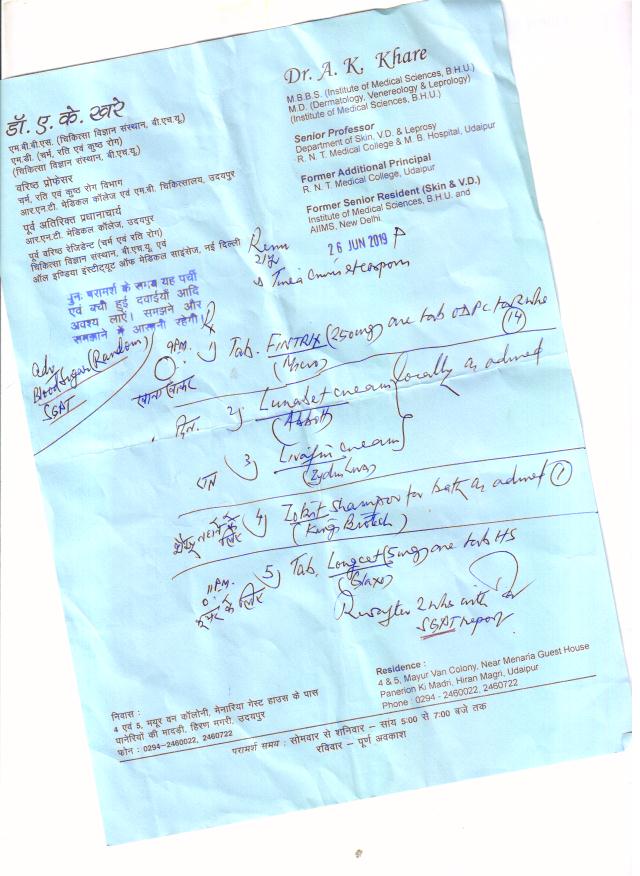 Dr. A. K. Khare
M.B.B.S. (Institute of Medical Sciences, B.H.U.)
M.D. (Dermatology, Venereology & Leprology)
(Institute of Medical Sciences, B.H.U.)
Senior Professor
Department of Skin, V.D. & Leprosy
R. N. T. Medical College & M. B. Hospital, Udaipur
Former Additional Principal
R. N. T. Medical College, Udaipur
Former Senior Resident (Skin & V.D.)
Institute of Medical Sciences, B.H.U. and
AIIMS, New Delhi
डॉ. ए. के. खरे
एम.बी.बी.एस. (चिकित्सा विज्ञान संस्थान, बी.एच.यू.)
एम.डी. (चर्म, रति एवं कुष्ठ रोग)
(चिकित्सा विज्ञान संस्थान, बी.एच.यू.)
वरिष्ठ प्रोफेसर
चर्म, रति एवं कुष्ठ रोग विभाग
आर.एन.टी. मेडिकल कॉलेज एवं एम.बी. चिकित्सालय, उदयपुर
पूर्व अतिरिक्त प्रधानाचार्य
आर.एन.टी. मेडिकल कॉलेज, उदयपुर
पूर्व वरिष्ठ रेजिडेन्ट (चर्म एवं रति रोग)
चिकित्सा विज्ञान संस्थान, बी.एच.यू. एवं
ऑल इण्डिया इंस्टीट्यूट ऑफ मेडिकल साइंसेज, नई दिल्ली
26 JUN 2019
पुनः परामर्श के समय यह पर्ची
एवं बची हुई दवाईयाँ आदि
अवश्य लाएं। समझने और
समझाने में आसानी रहेगी।
Adv
Blood Sugar (Random)
SGAT
9 PM.
1) Tab. FINTRIX (250mg) one tab OD PC for 2 wks
(14)
(Micro)
दिन. 2) cream locally as advised
(Abbott)
3) cream
(Zydus)
4) Shampoo for bath as advised (1)
11 PM.
5) Tab. Longcet (5mg) one tab HS
(Glaxo)
Rev after 2 wks with
SGAT report
Residence :
4 & 5, Mayur Van Colony, Near Menaria Guest House
Panerion Ki Madri, Hiran Magri, Udaipur
Phone : 0294 - 2460022, 2460722
निवास :
4 एवं 5, मयूर वन कॉलोनी, मेनारिया गेस्ट हाउस के पास
पानेरियों की मादड़ी, हिरण मगरी, उदयपुर
फोन : 0294-2460022, 2460722
परामर्श समय : सोमवार से शनिवार – सांय 5:00 से 7:00 बजे तक
रविवार – पूर्ण अवकाश